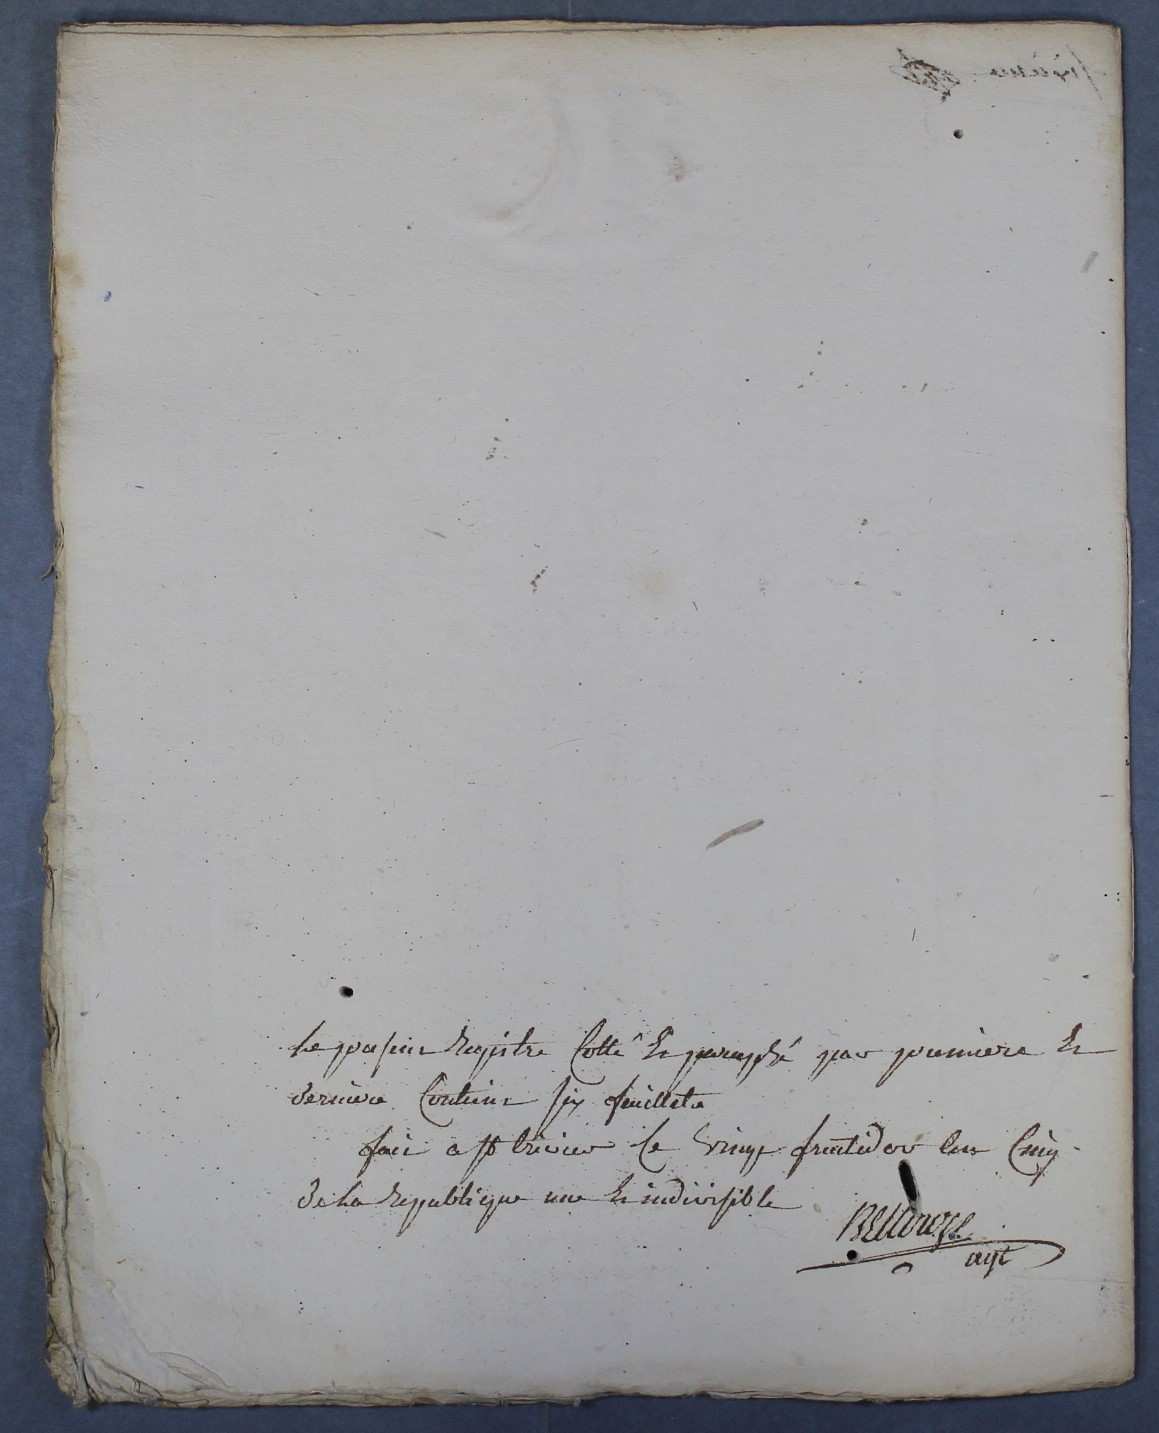 le present Registre Cotté et paraphé par premiere et
derniere Contient six feuillets
fait a st trivier le vingt fructidor lan Cinq
de La Republique une et indivisible
agt